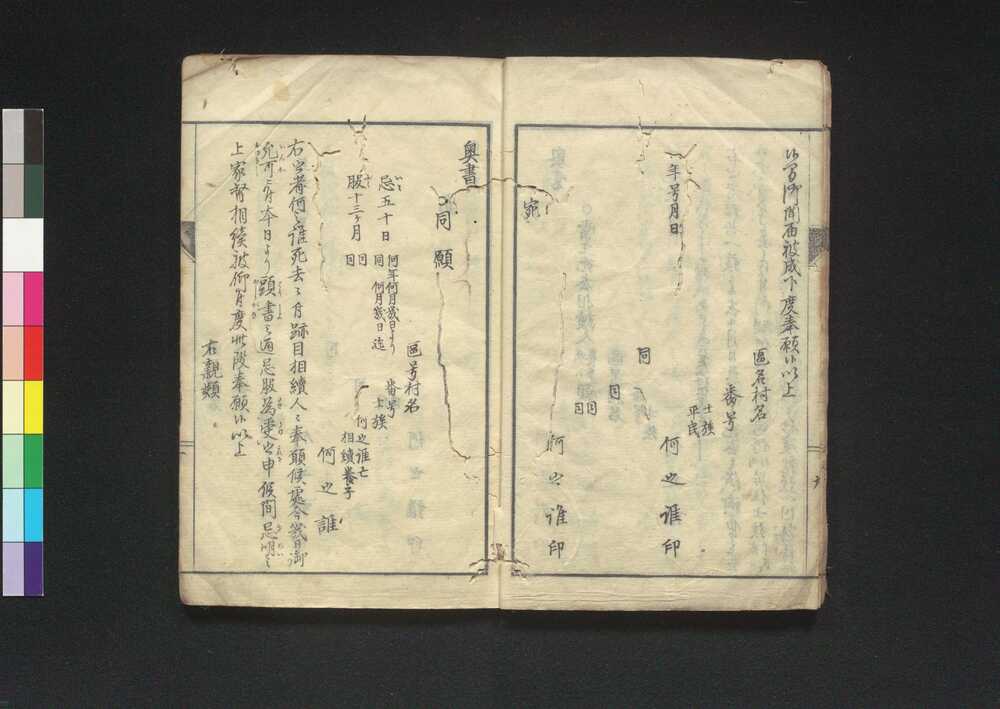 御聞届被成下度奉願候以上
区名村名
番号
士族
平民
何之誰印
年号月日
同
同
同
同
何之誰印
宛
奥書
同願
忌五十日
何年何月幾日より
同何月幾日迄
服十三ヶ月
同
同
区号村名
番号
士族
何之誰亡
相続養子
何之誰
右之者何之誰死去ニ付跡目相続人ニ奉願候処今幾日御
允可ニ付本日より願書之通忌服為受之申候間忌明之
上家督相続被仰付度此段奉願候以上
右親類